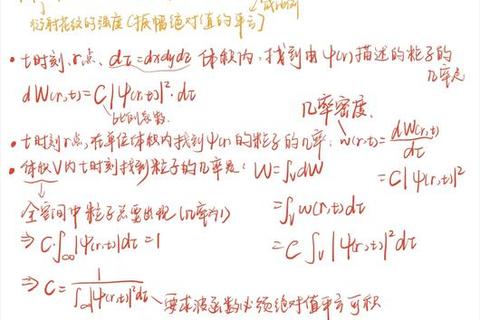 衍射花纹的强度(振幅绝对值的平方)
• t时刻、r点、dτ=dxdydz 体积内,找到由ψ(r)描述的粒子的
几率是
dW(r,t)=C|ψ(r,t)|²·dτ
比例常数
几率密度.
• t时刻r点,在单位体积内找到ψ(r)的粒子的几率: w(r,t)=dW(r,t)/dτ
=C|ψ(r,t)|²
• 体积V内t时刻找到粒子的几率是: W=∫_V dW
=∫_V w(r,t)dτ
=C∫_V|ψ(r,t)|²dτ
全空间中粒子总要出现(几率为1)
⇒ C∫_∞|ψ(r,t)|dτ=1
⇒ C=1/∫_∞|ψ(r,t)|²dτ
要求波函数必须绝对值平方可积